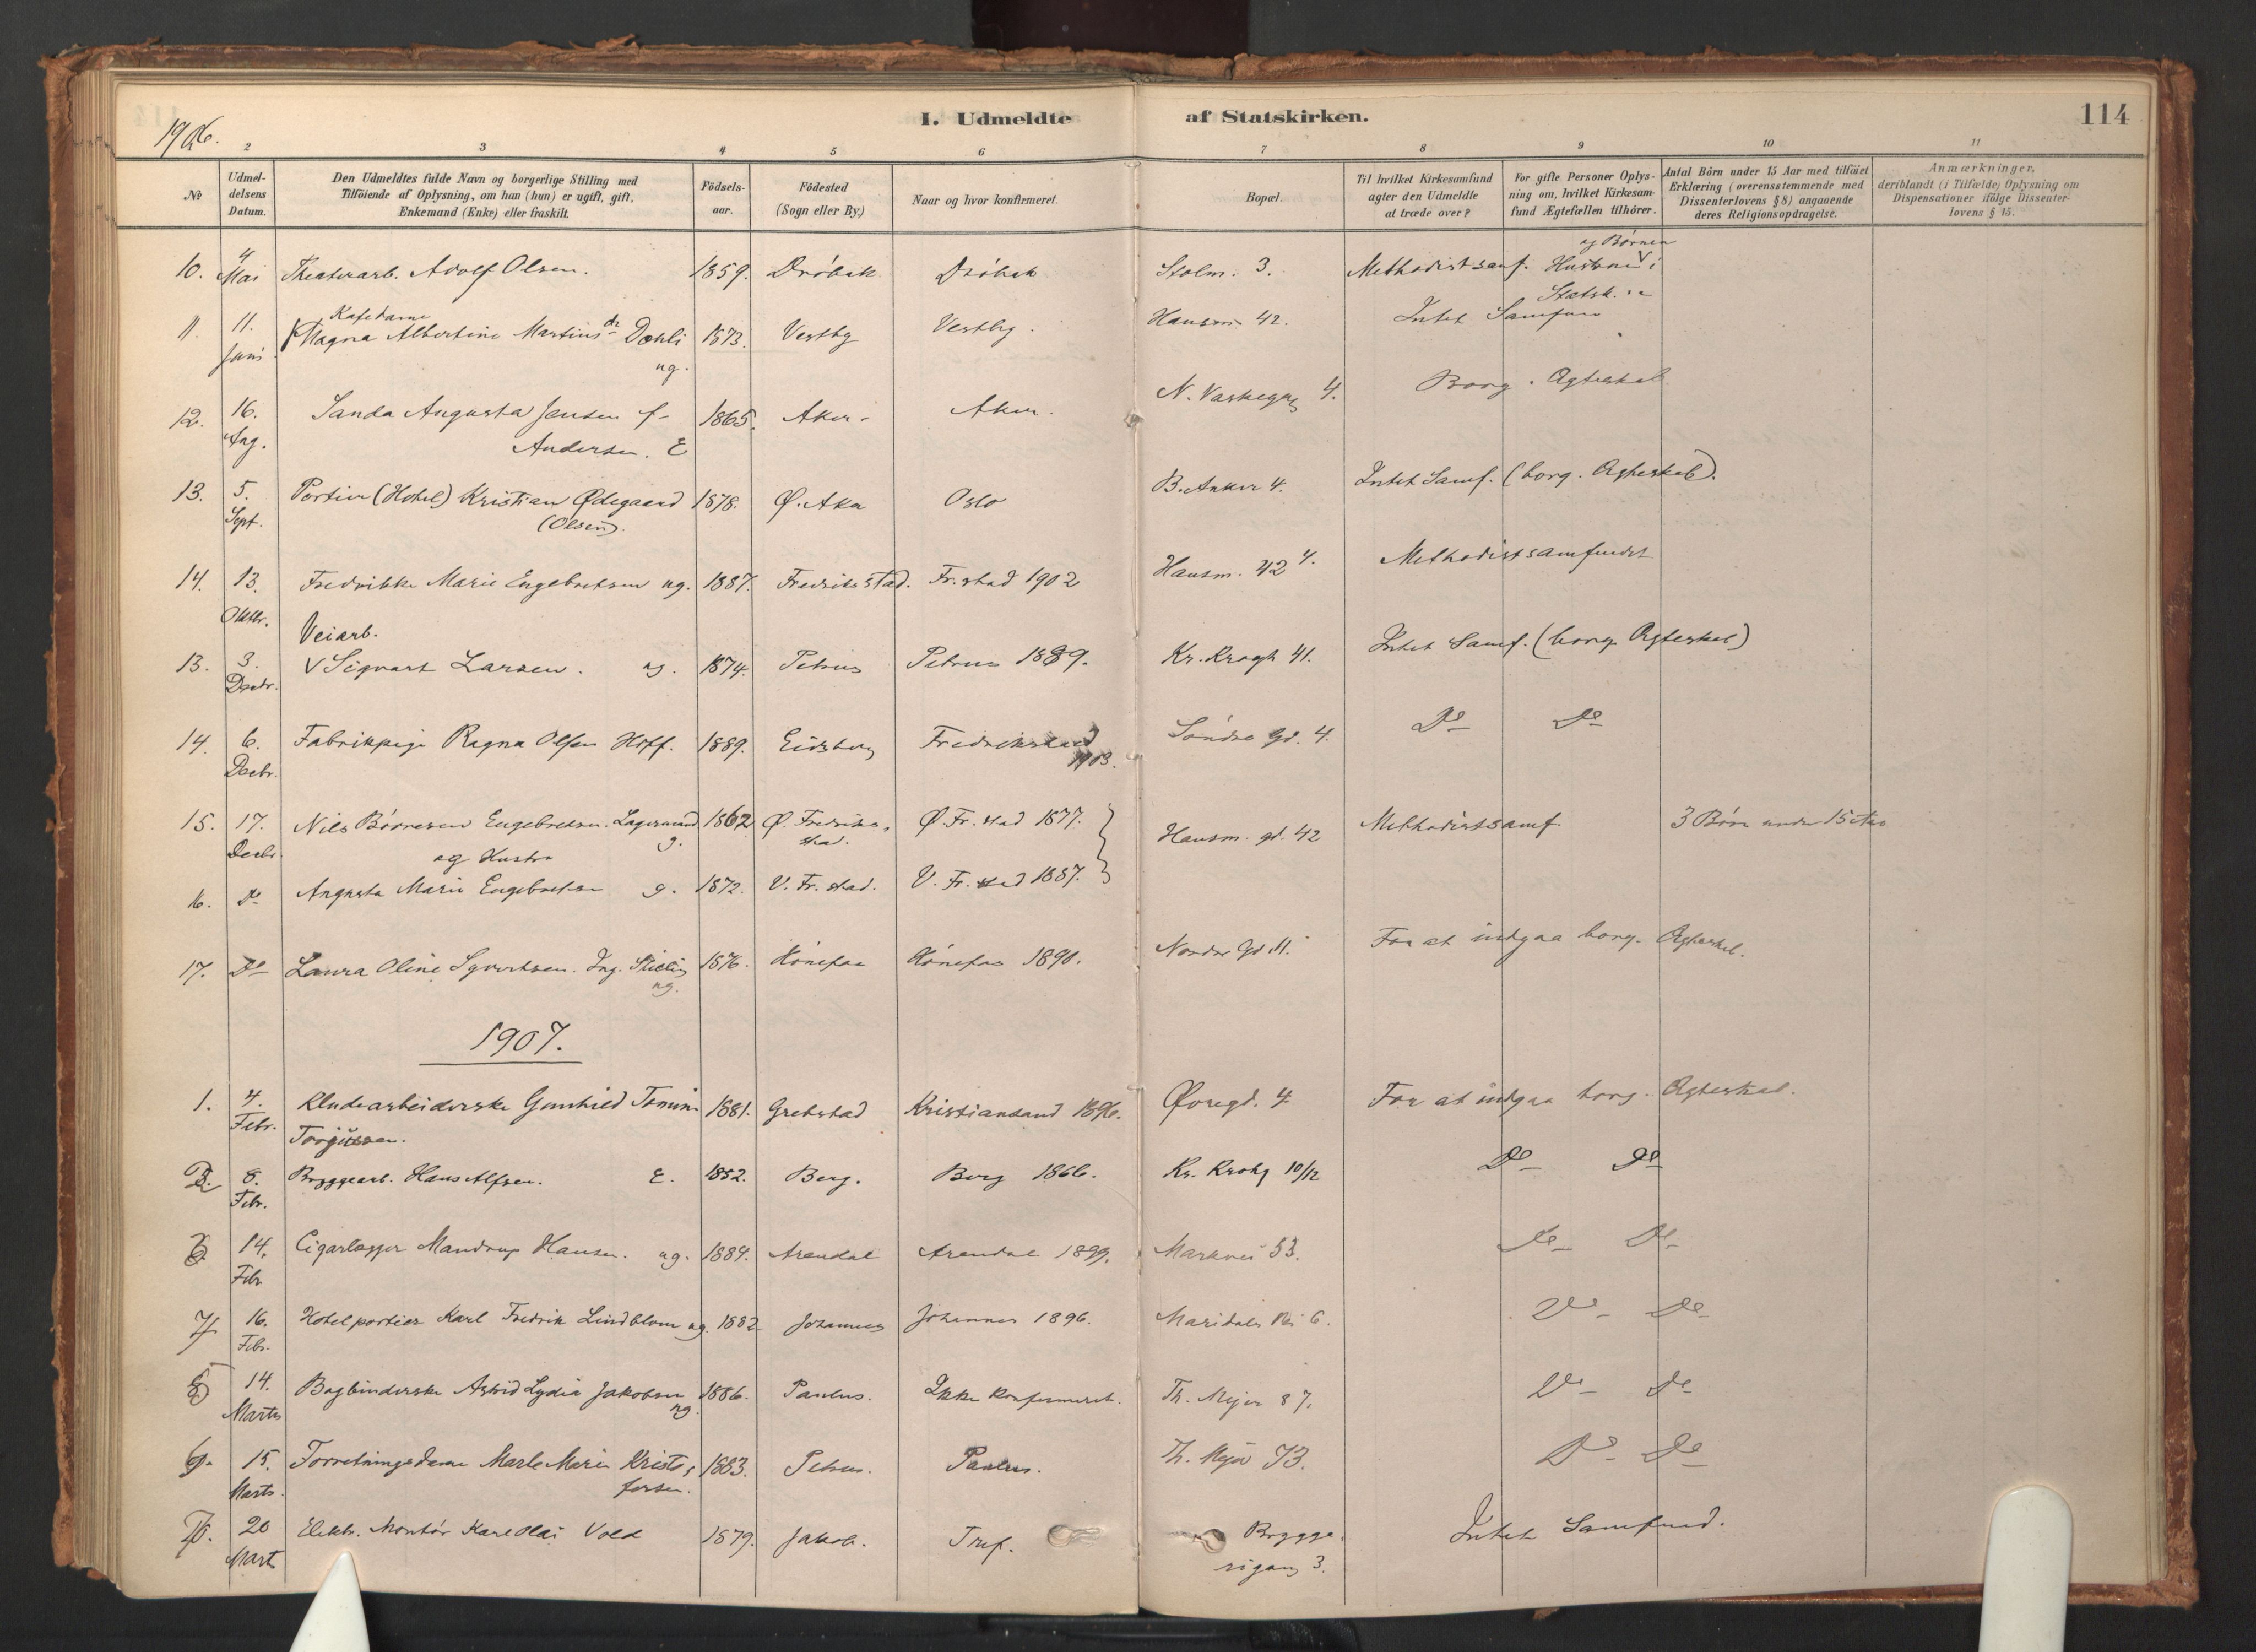 1906.
I. Udmeldte af Statskirken.
114
2 3 4 5 6 7 8 9 10 11
№
Udmeldelsens Datum.
Den Udmeldtes fulde Navn og borgerlige Stilling med
Tilföiende af Oplysning, om han (hun) er ugift, gift,
Enkemand (Enke) eller fraskilt.
Födselsaar.
Födested
(Sogn eller By.)
Naar og hvor konfirmeret.
Bopæl.
Til hvilket Kirkesamfund
agter den Udmeldte
at træde over?
For gifte Personer Oplys-
ning om, hvilket Kirkesam-
fund Ægtefællen tilhörer.
Antal Börn under 15 Aar med tilföiet
Erklæring (overensstemmende med
Dissenterlovens § 8) angaaende
deres Religionsopdragelse.
Anmærkninger,
deriblandt (i Tilfælde) Oplysning om
Dispensationer ifölge Dissenter-
lovens § 15.
og Børnen
10. 4 Mai Theaterarb. Adolf Olsen. 1859. Drøbak Drøbak Stolm. 3. Methodistsamf. Hustrun i
Statsk.
Kafedame
11. 11. Juni Magna Albertine Martinsdr Dæhli ug. 1873. Vestby Vestby. Hausm. 42. Intet Samfund
12. 16. Aug. Sanda Augusta Jensen f. 1865. Aker. Aker. N. Vaskegang 4. Borg. Ægteskab
Andersen. E
13. 5. Sept. Portier (Hotel) Kristian Ødegaard 1878. Ø. Aker Oslo B. Anker 4. Intet Samf. (borg. Ægteskab).
(Olsen).
14. 13. Oktbr. Fredrikke Marie Engebretsen ug. 1887. Fredriksstad. Fr.stad 1902 Hausm. 42 4. Methodistsamfundet
Veiarb.
13. 3. Decbr. Sigvart Larsen. ug. 1874. Petrus Petrus 1889. Kr. Krogh 41. Intet Samf. (borg. Ægteskab)
14. 6. Decbr. Fabrikpige Ragna Olsen Hoff. 1889. Eidsberg Fredrikstad 1903. Søndre Gd. 4. Do Do
15. 17. Decbr. Nils Børresen Engebretsen. Lagermand g. 1862 Ø. Fredriksstad. Ø. Fr. stad 1877. Hausm. gd. 42 Methodistsamf. 3 Børn under 15 Aar
og Hustru
16. Do Augusta Marie Engebretsen g. 1872. V. Fr. stad. V. Fr. stad 1887.
17. Do Laura Oline Syvertsen. ug. 1876. Hønefos Hønefos 1890. Nordre Gd 11. For at indgaa borg. Ægteskab.
1907.
1. 4. Febr. Kludearbeiderske Gunhild Tomine 1881. Grebstad Kristiansand 1896. Øvregd. 4. For at indgaa borg. Ægteskab.
Torjussen.
2. 8. Febr. Bryggearb. Hans Alfsen. E. 1852. Berg. Berg 1866. Kr. Krohg 10/12 Do Do
3. 14. Febr Cigarlægger Mandrup Hansen. ug. 1884. Arendal Arendal 1899. Markvei 53. Do Do
4. 16. Febr. Hotelportier Karl Fredrik Lindblom ug. 1882 Johannes Johannes 1896. Maridals Vei 6. Do Do
5 14. Marts Bogbinderske Astrid Lydia Jakobsen ug. 1886. Paulus. Ikke konfirmeret. Th. Mejer 87. Do Do
6. 15. Marts. Forretningsdame Marle Marie Kristofersen. 1883. Petrus. Paulus. Th. Mejer 73. Do Do
7. 20 Marts Elektr. Montør Karl Olai Vold 1879. Jakob. Tref. Bryggerigang 3. Intet Samfund.